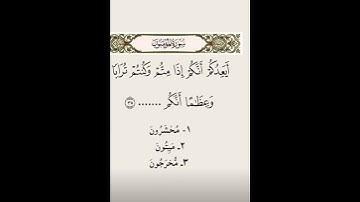 سُورَةُ المُؤْمِنُونَ
أَيَعِدُكُمْ أَنَّكُمْ إِذَا مِتُّمْ وَكُنتُمْ تُرَابًا
وَعِظَامًا أَنَّكُم ....... ٣٥
١- مُحْشَرُونَ
٢- مَيِّتُونَ
٣- مُّخْرَجُونَ